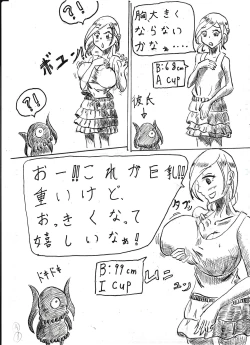 胸大きく
ならない
かなぁ….
B:68cm
A cup
彼氏
?!
ボユン!!
?!
おー!!これが巨乳!!
重いけど、
おっきくなって
嬉しいなぁ!
B:99cm
I cup
ドキドキ